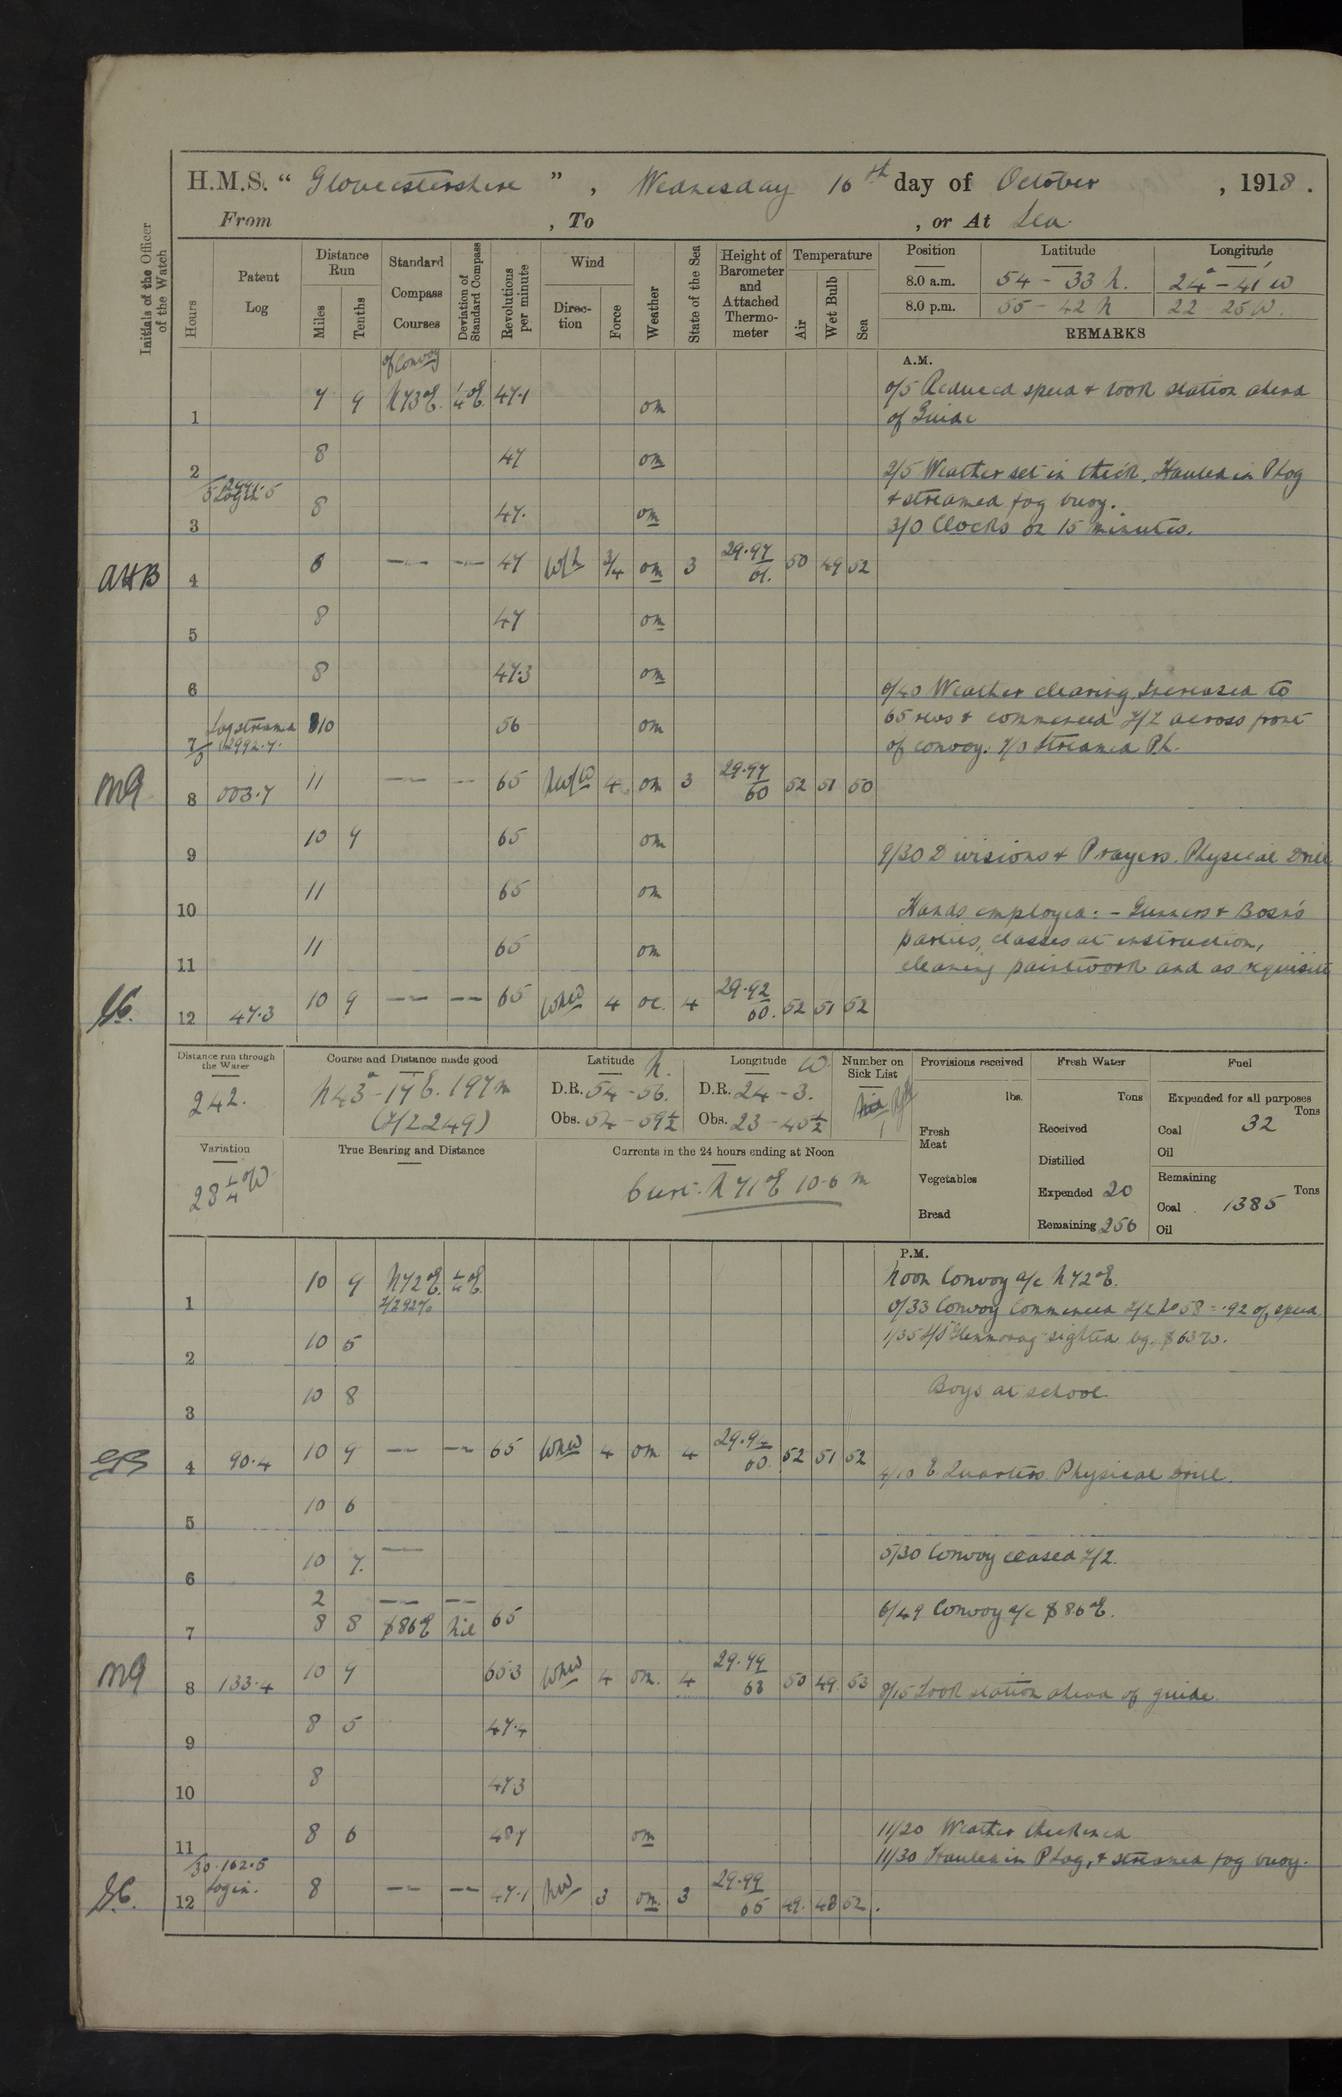 H.M.S. “ Gloucestershire ” , Wednesday 16th day of October , 1918 .
From , To , or At Sea
Initials of the Officer of the Watch
Hours
Patent Log
Distance Run
Miles
Tenths
Standard Compass Courses
Deviation of Standard Compass
Revolutions per minute
Wind
Direction
Force
Weather
State of the Sea
Height of Barometer and Attached Thermometer
Temperature
Air
Wet Bulb
Sea
Position Latitude Longitude
8.0 a.m. 54 - 33 N. 24° - 41' W
8.0 p.m. 55 - 42 N 22 - 25 W.
REMARKS
A.M.
of Convoy
1 7 9 N73°E. ¼°E. 47.1 om
0/5 Reduced speed & took station ahead
of Guide
2 8 47 om
2/5 Weather set in thick. Hauled in P Log
& streamed fog buoy.
3 8 47. om
3/0 Clocks on 15 minutes.
AHB 4 8 47 W/N 3/4 om 3 29.97 61. 50 49 52
5 8 47 om
6 8 47.3 om
6/40 Weather clearing. Increased to
65 revs & commenced Z/Z across front
of convoy. 7/0 Streamed P.L.
7/0 Log streamed 2992.7. 10 56 om
8 003.7 11 65 NW/W 4 om 3 29.97 60 52 51 50
9 10 9 65 om
9/30 Divisions & Prayers. Physical Drill
10 11 65 om
Hands employed: - Gunners & Bosn's
parties, classes at instruction,
cleaning paintwork and as requisite
11 11 65 om
12 47.3 10 9 65 WNW 4 oc. 4 29.92 60. 52 51 52
Distance run through the Water
242.
Course and Distance made good
N43°-17'E. 197m
(Z/Z 249)
Latitude N.
D.R. 54 - 56.
Obs. 54 - 59½
Longitude W.
D.R. 24 - 3.
Obs. 23 - 45½
Number on Sick List
1
Provisions received
lbs.
Fresh Meat
Vegetables
Bread
Fresh Water
Tons
Received
Distilled
Expended 20
Remaining 256
Fuel
Expended for all purposes
Tons
Coal 32
Oil
Remaining
Tons
Coal 1385
Oil
Variation
28¼°W
True Bearing and Distance
Currents in the 24 hours ending at Noon
Curt. N71°E 10.6 m
P.M.
Noon Convoy a/c N72°E.
1 10 9 N72°E. ¼°E.
0/33 Convoy Commenced Z/Z No 58 = .92 of speed
2 10 5
1/35 S/S Glenmorag sighted bg. S63W.
3 10 8
Boys at school
4 90.4 10 9 65 WNW 4 om 4 60. 52 51 52
4/10 E. Quarters Physical Drill.
5 10 6
6 10 7.
5/30 Convoy ceased Z/Z.
7 2
8 8 S86°E Nil 65
6/49 Convoy a/c S86°E.
8 133.4 10 9 65.3 WNW 4 om. 4 29.99 63 50 49 53
8/15 Took station ahead of guide
9 8 5 47.4
10 8 47.3
11 8 6 48.7 om
11/20 Weather thickened
11/30 Hauled in P Log, & streamed fog buoy.
/30 162.5 Log in.
12 8 47.1 NW 3 om. 3 29.99 65 49. 48 52